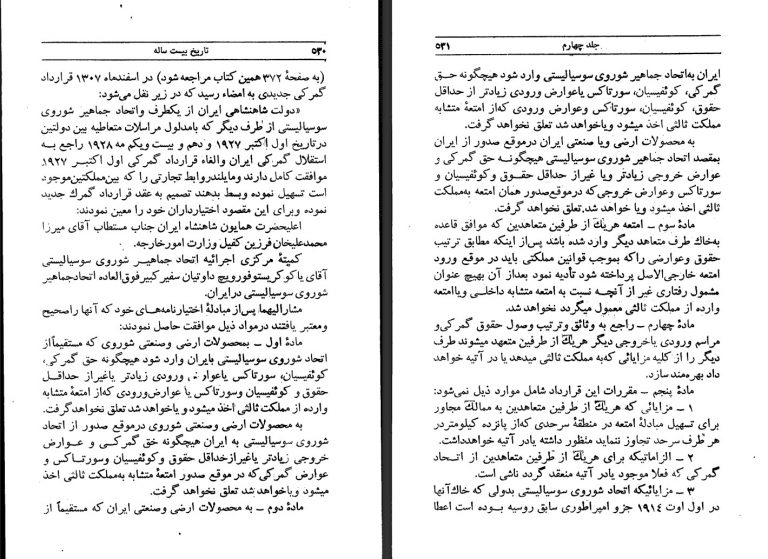 ۵۳۰ تاریخ بیست ساله
(به صفحهٔ ۳۷۲ همین کتاب مراجعه شود) در اسفندماه ۱۳۰۷ قرارداد
گمرکی جدیدی به امضاء رسید که در زیر نقل می‌شود:
«دولت شاهنشاهی ایران از یکطرف و اتحاد جماهیر شوروی
سوسیالیستی از طرف دیگر که بامدلول مراسلات متعاطیه بین دولتین
در تاریخ اول اکتبر ۱۹۲۷ و دهم و بیست ویکم مه ۱۹۲۸ راجع به
استقلال گمرکی ایران والغاء قرارداد گمرکی اول اکتبر ۱۹۲۷
موافقت کامل دارند ومایلند روابط تجارتی را که بین‌مملکتین‌موجود
است تسهیل نموده وبسط بدهند تصمیم به عقد قرارداد گمرك جدید
نموده وبرای این مقصود اختیارداران خود را معین نمودند:
اعلیحضرت همایون شاهنشاه ایران جناب مستطاب آقای میرزا
محمدعلیخان فرزین کفیل وزارت امورخارجه.
کمیتهٔ مرکزی اجرائیه اتحاد جماهیر شوروی سوسیالیستی
آقای یاکوکریستوفورویچ داوتیان سفیر کبیر فوق‌العاده اتحادجماهیر
شوروی سوسیالیستی درایران.
مشارالیهما پس‌از مبادلهٔ اختیارنامه‌های خود که آنها راصحیح
ومعتبر یافتند درمواد ذیل موافقت حاصل نمودند:
مادهٔ اول – بمحصولات ارضی وصنعتی شوروی که مستقیماً از
اتحاد شوروی سوسیالیستی بایران وارد شود هیچگونه حق گمرکی،
کوئفیسیان، سورتاکس یاعوارض ورودی زیادتر یاغیراز حداقل
حقوق و کوئفیسیان وسورتاکس یا عوارض‌ورودی‌که‌از امتعهٔ متشابه
وارده از مملکت ثالثی اخذ میشود و یاخواهد شد تعلق نخواهدگرفت.
به محصولات ارضی وصنعتی شوروی درموقع صدور از اتحاد
شوروی سوسیالیستی به ایران هیچگونه حق گمرکی و عوارض
خروجی زیادتر یاغیرازحداقل حقوق وکوئفیسیان وسورتاکس و
عوارض گمرکی‌که در موقع صدور امتعهٔ متشابه به‌مملکت ثالثی اخذ
میشود ویاخواهد شد تعلق نخواهد گرفت.
مادهٔ دوم – به محصولات ارضی وصنعتی ایران که مستقیماً از
جلد چهارم ۵۳۱
ایران به‌اتحاد جماهیر شوروی سوسیالیستی وارد شود هیچگونه حق
گمرکی، کوئفیسیان، سورتاکس یاعوارض ورودی زیادتر از حداقل
حقوق، کوئفیسیان، سورتاکس وعوارض ورودی که‌از امتعهٔ متشابه
مملکت ثالثی اخذ میشود ویاخواهد شد تعلق نخواهد گرفت.
به محصولات ارضی ویا صنعتی ایران درموقع صدور از ایران
بمقصد اتحاد جماهیر شوروی سوسیالیستی هیچگونه حق گمرکی و
عوارض خروجی زیادتر ویا غیراز حداقل حقوق وکوئفیسیان و
سورتاکس وعوارض خروجی‌که درموقع‌صدور همان امتعه به‌مملکت
ثالثی اخذ میشود ویا خواهد شد،تعلق نخواهد گرفت.
مادهٔ سوم – امتعه هریك از طرفین متعاهدین که موافق قاعده
به‌خاك طرف متعاهد دیگر وارد شده باشد پس‌از اینکه مطابق ترتیب
حقوق وعوارضی راکه بموجب قوانین مملکتی باید در موقع ورود
امتعه خارجی‌الاصل پرداخته شود تأدیه نمود بعداز آن بهیچ عنوان
مشمول رفتاری غیر از آنچه نسبت به امتعه متشابه داخلی ویاامتعه
وارده از مملکت ثالثی معمول میگردد نخواهد شد.
مادهٔ چهارم – راجع به وثائق وترتیب وصول حقوق گمرکی‌و
مراسم ورودی یاخروجی دیگر هریك از طرفین متعهد میشوند طرف
دیگر را از کلیه مزایائی که‌به مملکت ثالثی میدهد یا در آتیه خواهد
داد بهره‌مند سازد.
مادهٔ پنجم – مقررات این قرارداد شامل موارد ذیل نمی‌شود:
۱ – مزایائی که هریك از طرفین متعاهدین به ممالك مجاور
برای تسهیل مبادلهٔ امتعه در منطقهٔ سرحدی که‌از پانزده کیلومتردر
هر طرف سرحد تجاوز ننماید منظور داشته یادر آتیه خواهدداشت.
۲ – الزاماتیکه برای هریك از طرفین متعاهدین از اتحاد
گمرکی که فعلا موجود یادر آتیه منعقد گردد ناشی است.
۳ – مزایائیکه اتحاد شوروی سوسیالیستی بدولی که خاك‌آنها
در اول اوت ۱۹۱۴ جزو امپراطوری سابق روسیه بوده است اعطا